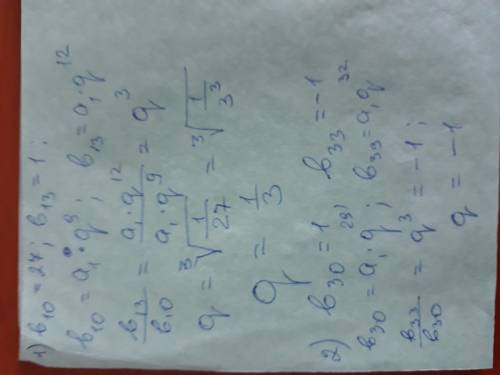 1) b₁₀ = 27; b₁₃ = 1;
b₁₀ = a₁ · q⁹; b₁₃ = a₁ · q¹²
b₁₃/b₁₀ = a₁ · q¹²/a₁ · q⁹ = q³
q = ∛(1/27) = ∛(1/3³)
q = 1/3
2) b₃₀ = 1 b₃₃ = -1
b₃₀ = a₁ q²⁹; b₃₃ = a₁ q³²
b₃₃/b₃₀ = q³ = -1;
q = -1